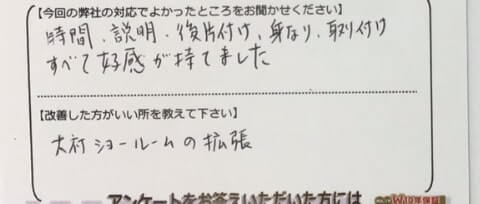 【今回の弊社の対応でよかったところをお聞かせください】
時間、説明、後片付け、身なり、取り付け
すべて好感が持てました
【改善した方がいい所を教えて下さい】
大村ショールームの拡張
アンケートをお答えいただいた方には
W10年保証